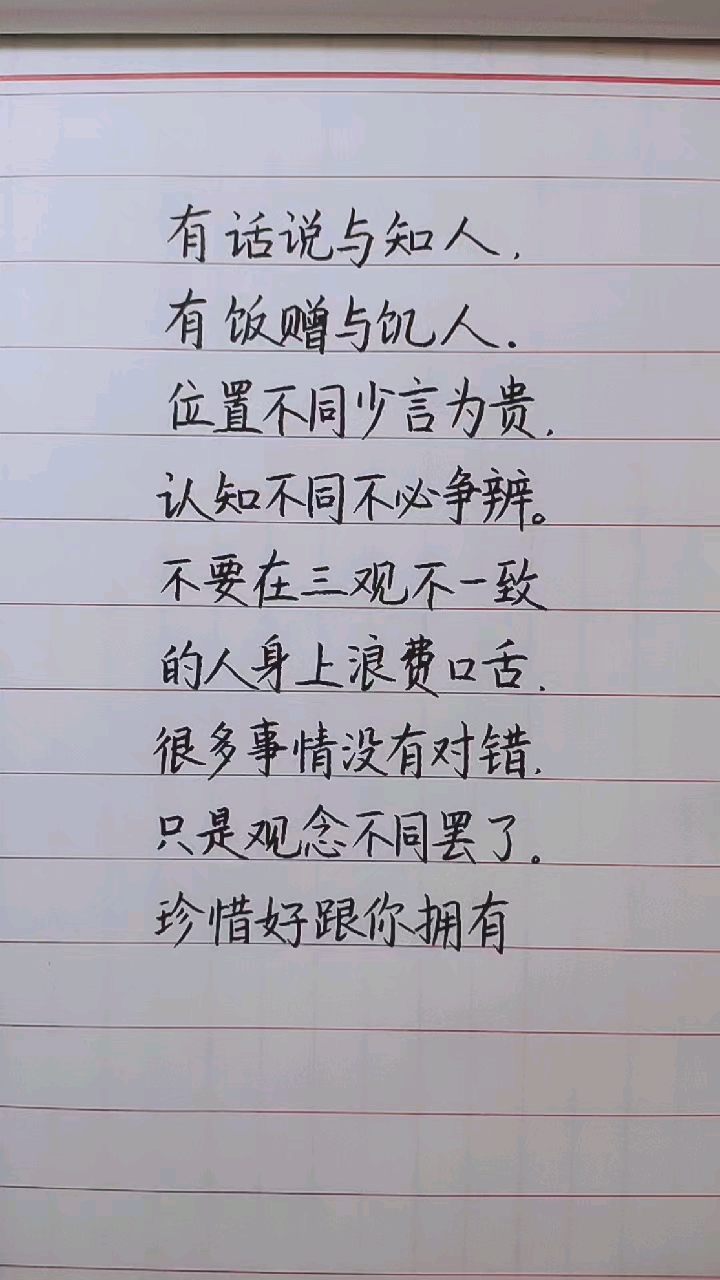 有话说与知人，
有饭赠与饥人.
位置不同少言为贵，
认知不同不必争辨。
不要在三观不一致
的人身上浪费口舌，
很多事情没有对错，
只是观念不同罢了。
珍惜好跟你拥有